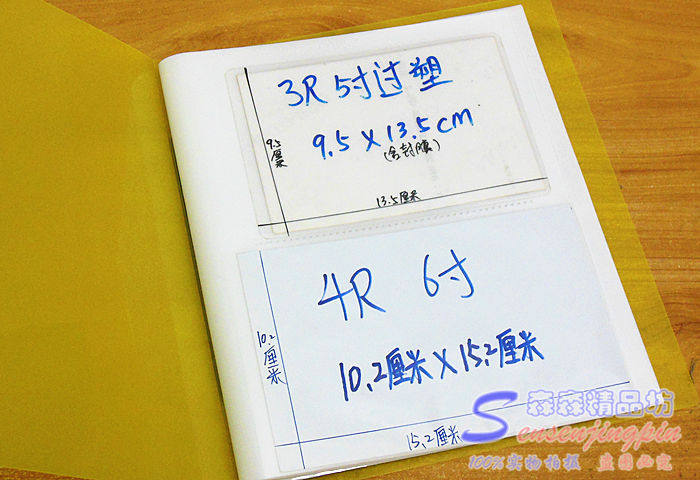 3R 5寸过塑
9.5 X 13.5cm
(含封膜)
9.5厘米
13.5厘米
4R 6寸
10.2厘米X15.2厘米
10.2厘米
15.2厘米
森森精品坊
Sensenjingpin
100%实物拍摄 盗图必究